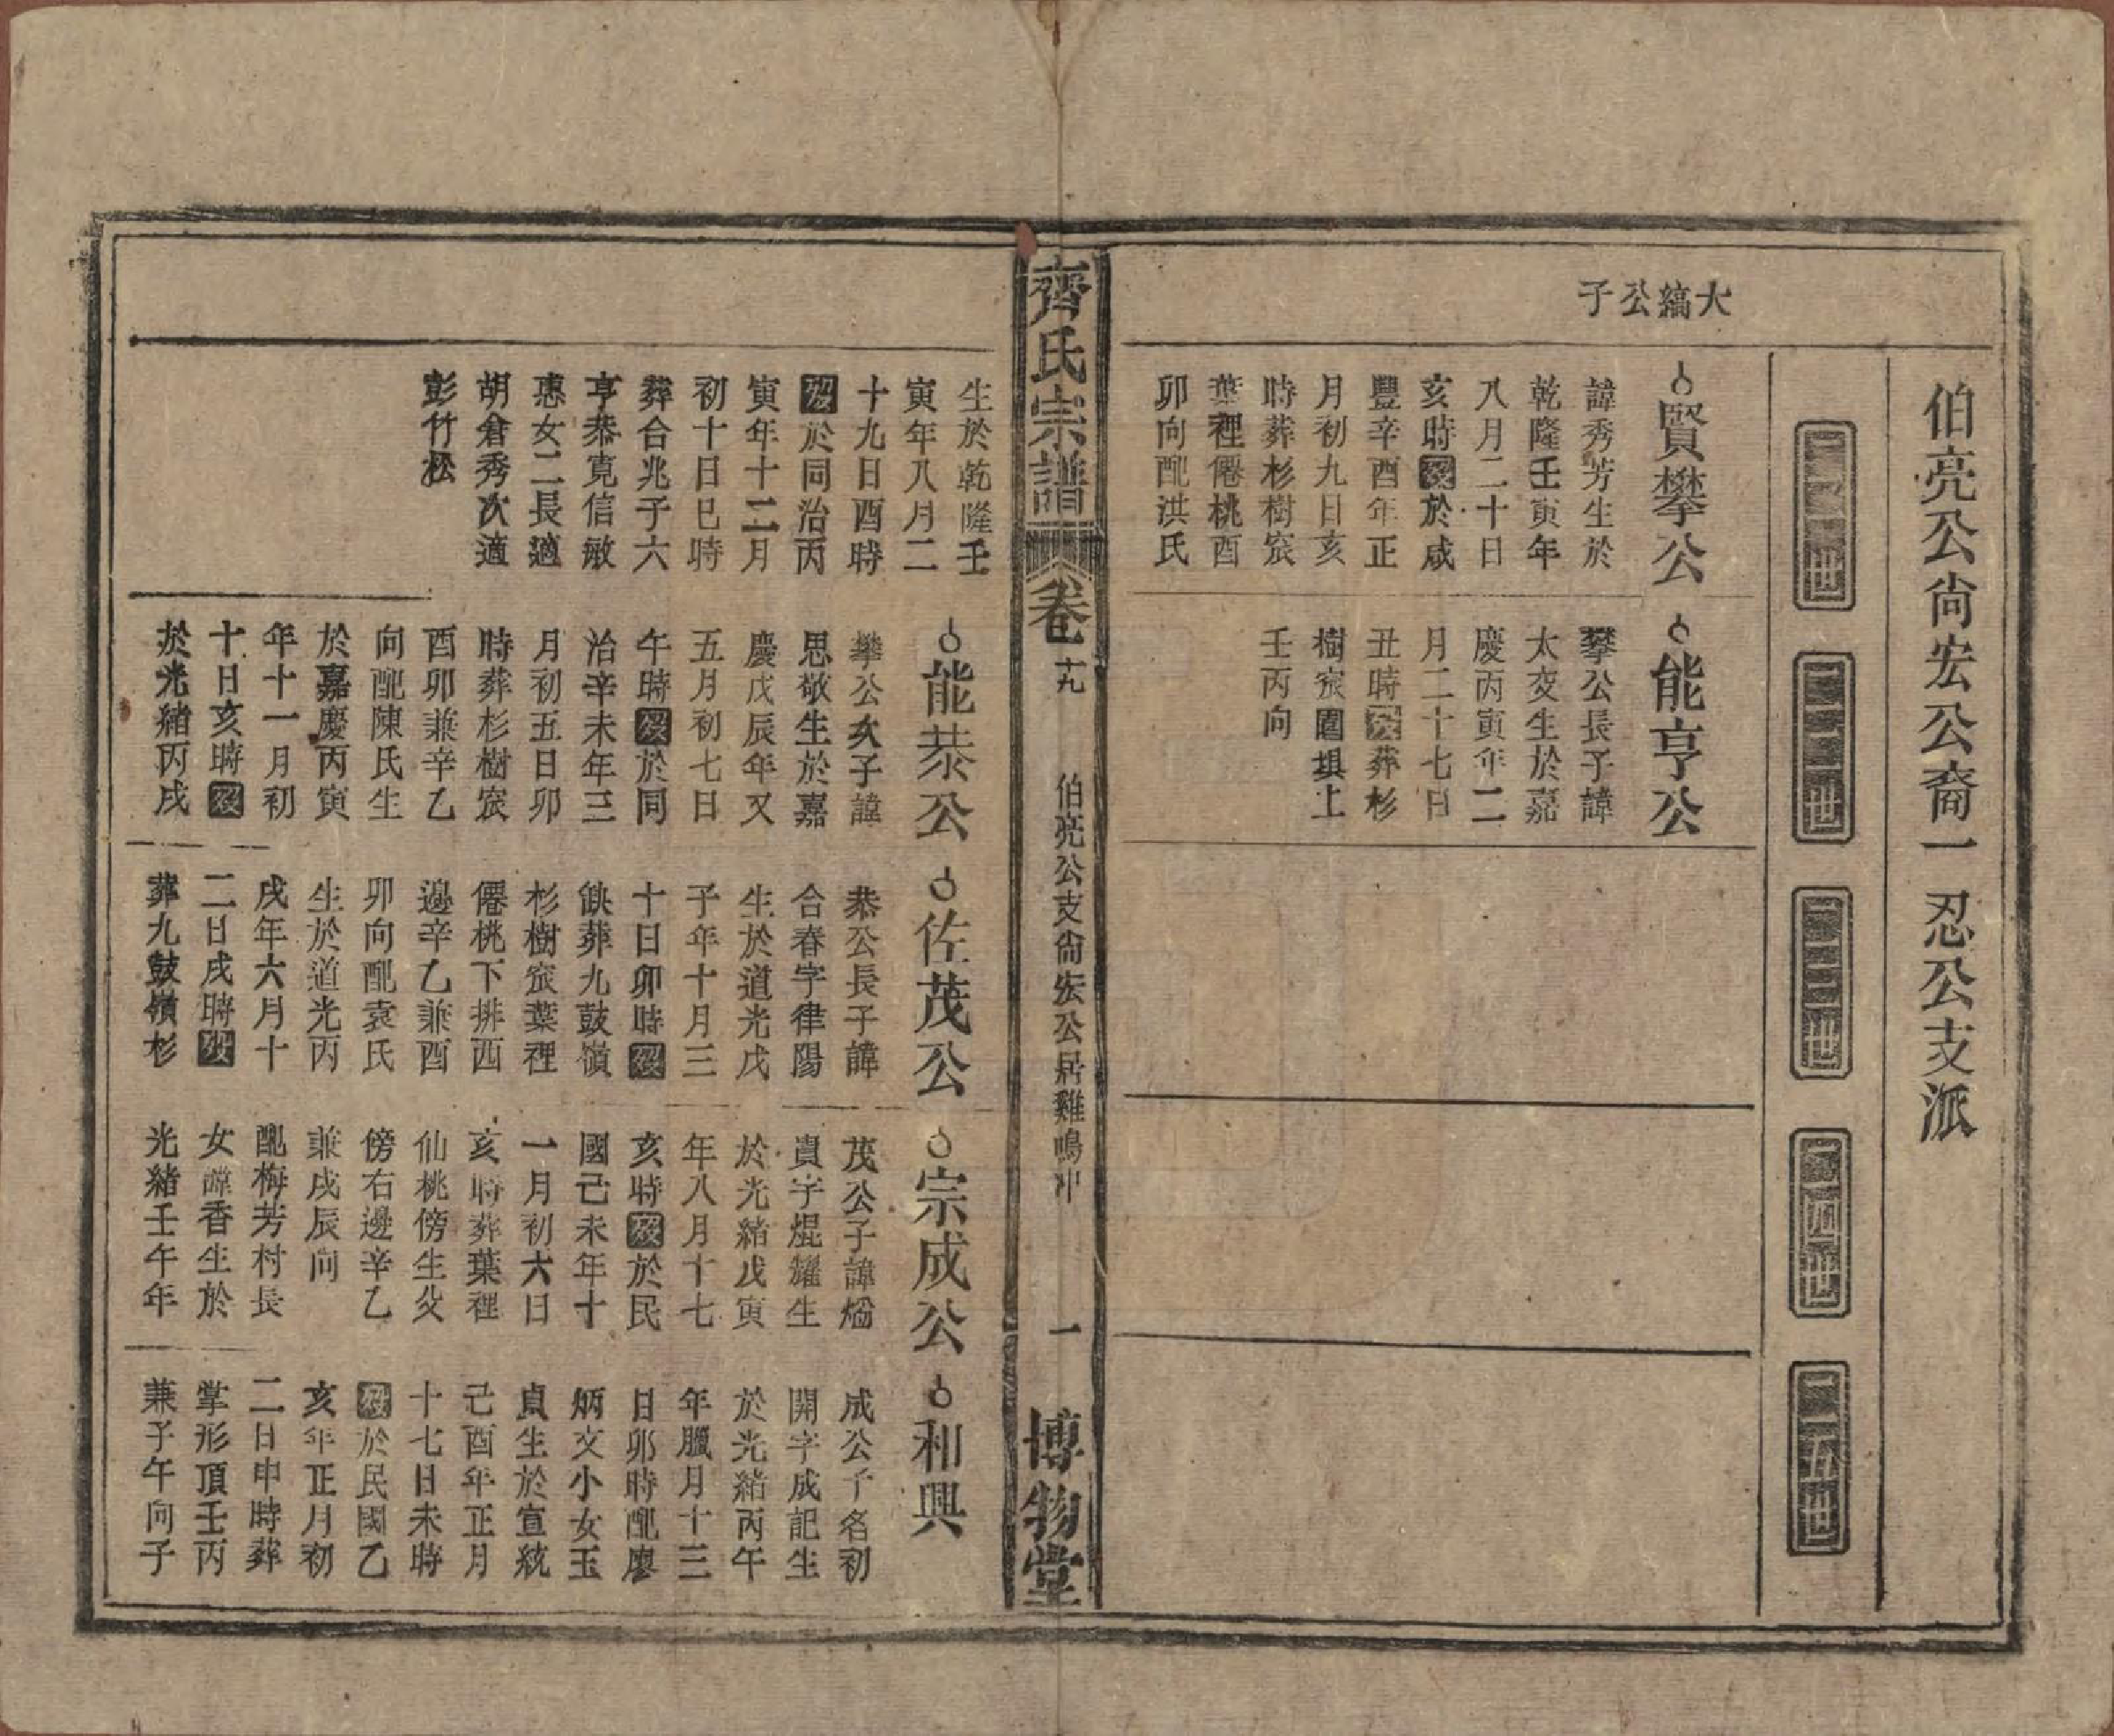 伯亮公尙宏公裔一忍公支派
二十一世
二十二世
二十三世
二十四世
二十五世
大縞公子
賢攀公
諱秀芳生於
乾隆壬寅年
八月二十日
亥時歿於咸
豐辛酉年正
月初九日亥
時葬杉樹窊
葉裡僊桃酉
卯向配洪氏
能亨公
攀公長子諱
太交生於嘉
慶丙寅年二
月二十七日
丑時歿葬杉
樹窊圍埧上
壬丙向
齊氏宗譜
卷十九
伯亮公支尙宏公居雞鳴冲
一
博物堂
生於乾隆壬
寅年八月二
十九日酉時
歿於同治丙
寅年十二月
初十日巳時
葬合兆子六
亨恭寬信敏
惠女二長適
胡倉秀次適
彭竹松
能恭公
攀公次子諱
思敬生於嘉
慶戊辰年又
五月初七日
午時歿於同
治辛未年三
月初五日卯
時葬杉樹窊
酉卯兼辛乙
向配陳氏生
於嘉慶丙寅
年十一月初
十日亥時歿
於光緒丙戌
佐茂公
恭公長子諱
合春字律陽
生於道光戊
子年十月三
十日卯時歿
缺葬九鼓嶺
杉樹窊葉裡
僊桃下排西
邊辛乙兼酉
卯向配袁氏
生於道光丙
戌年六月十
二日戌時歿
葬九鼓嶺杉
宗成公
茂公子諱炀
貴字焜耀生
於光緒戊寅
年八月十七
亥時歿於民
國己未年十
一月初六日
亥時葬葉裡
仙桃傍生父
傍右邊辛乙
兼戌辰向
配梅芳村長
女諱香生於
光緒壬午年
和興
成公子名初
開字成記生
於光緒丙午
年臘月十三
日卯時配廖
炳文小女玉
貞生於宣統
己酉年正月
十七日未時
歿於民國乙
亥年正月初
二日申時葬
掌形頂壬丙
兼子午向子